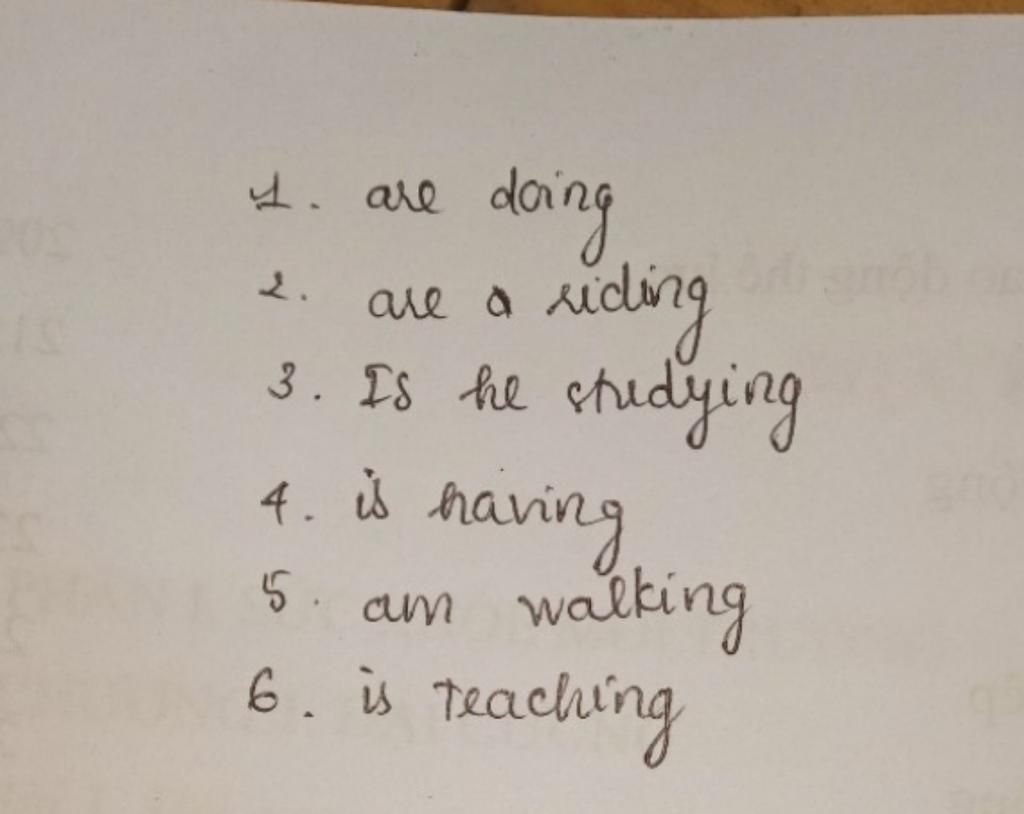 1. are doing
2. are a riding
3. Is he studying
4. is having
5. am walking
6. is teaching